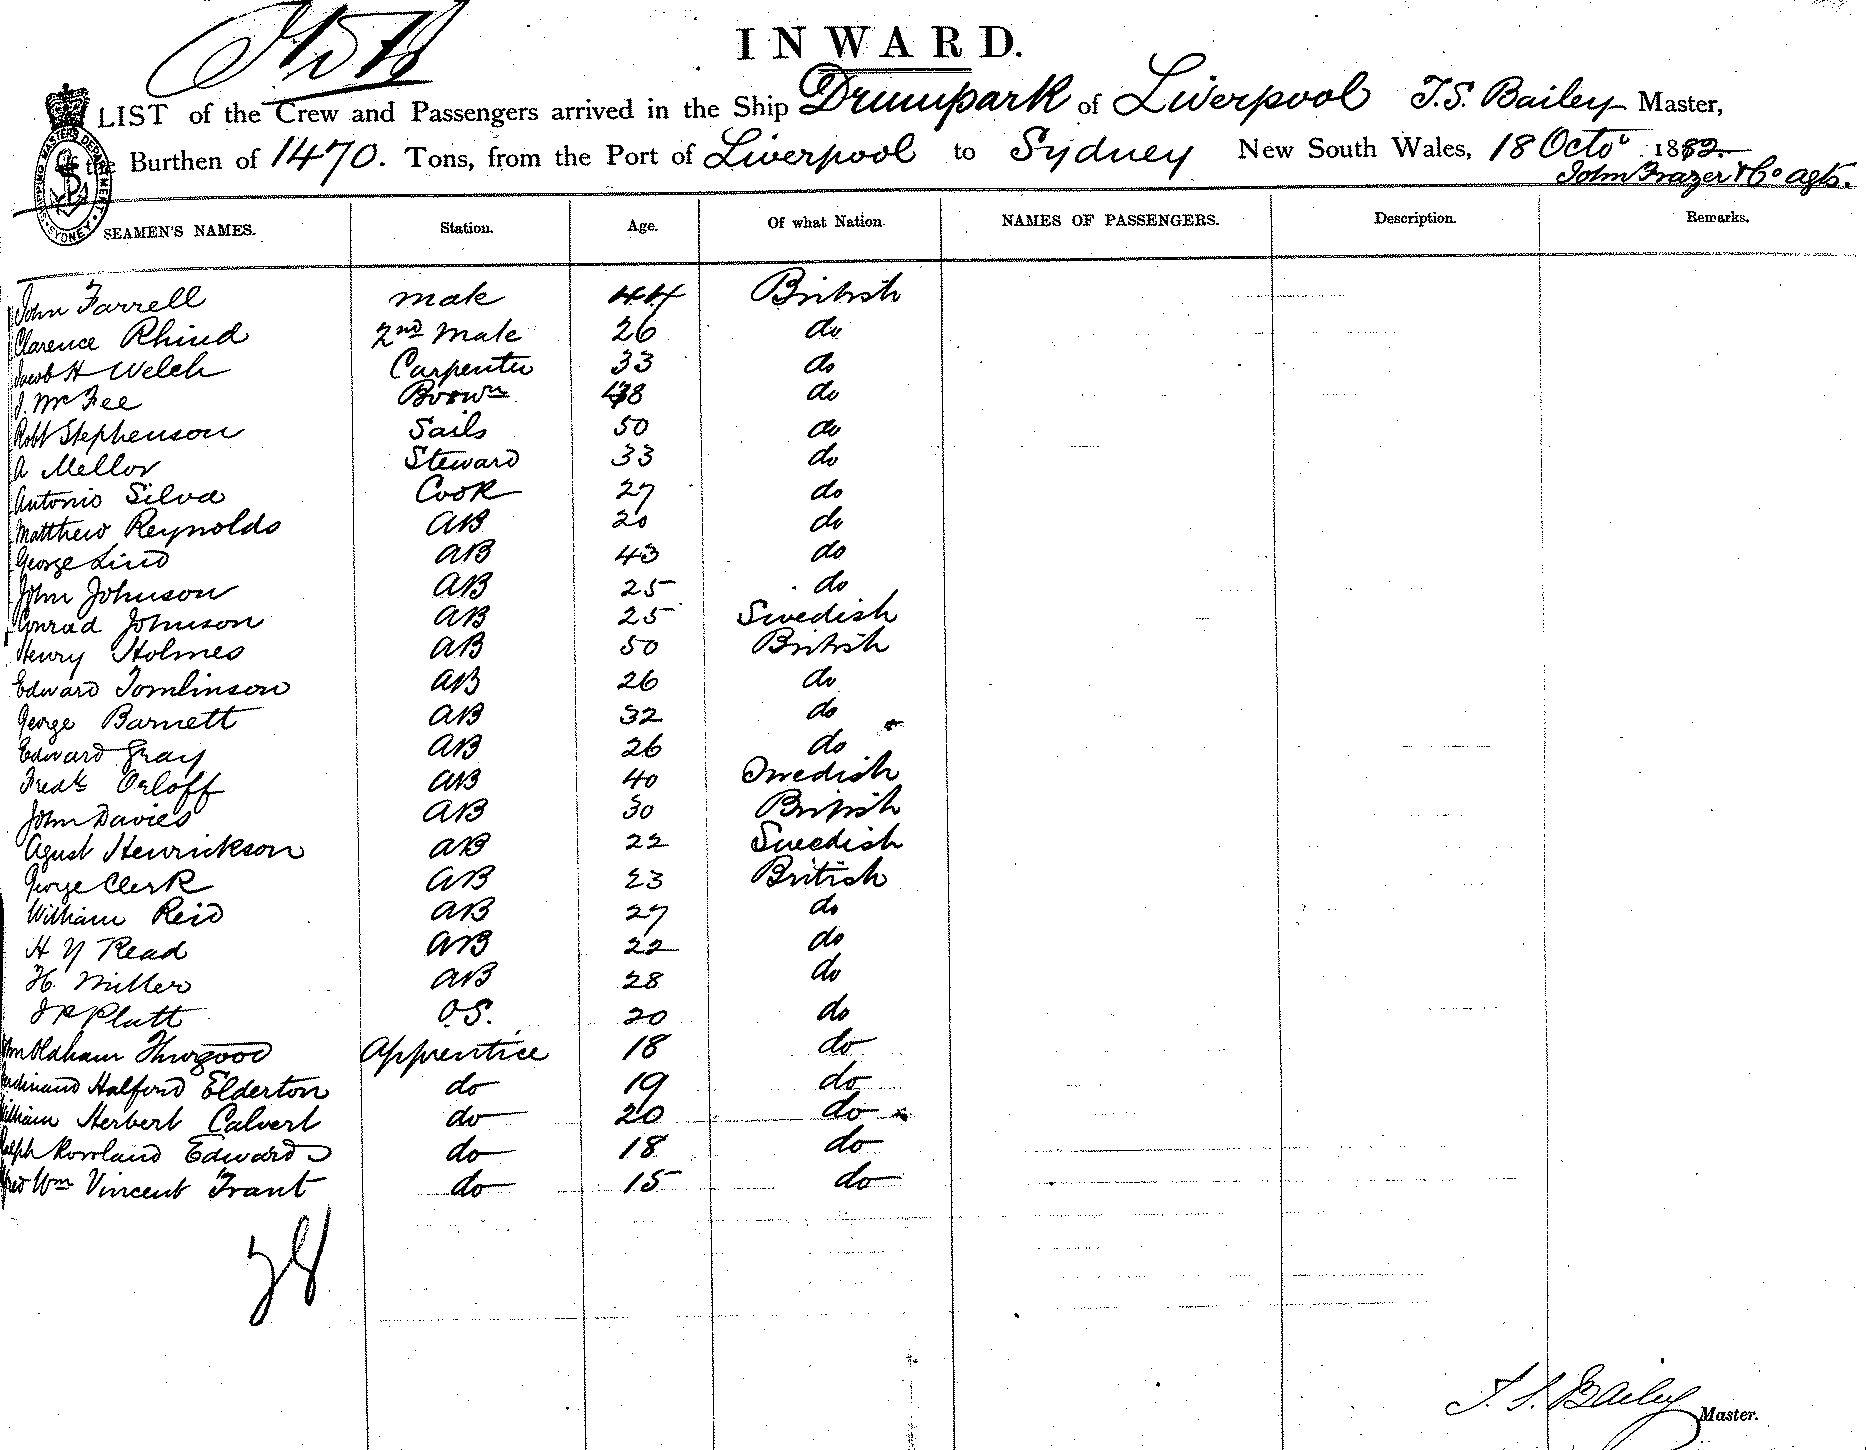 INWARD.
LIST of the Crew and Passengers arrived in the Ship Drumpark of Liverpool T.S. Bailey Master,
of the Burthen of 1470. Tons, from the Port of Liverpool to Sydney New South Wales, 18 Octo 1882.
John Frazer & Co agts.
SHIPPING MASTERS DEPARTMENT. SYDNEY
SEAMEN'S NAMES. Station. Age. Of what Nation. NAMES OF PASSENGERS. Description. Remarks.
John Farrell mate 44 British
Clarence Rhind 2nd mate 26 do
Jacob H Welch Carpenter 33 do
J. McFee Boswn 38 do
Robt Stephenson Sails 50 do
A Mellor Steward 33 do
Antonio Silva Cook 27 do
Matthew Reynolds AB 20 do
George Lind AB 43 do
John Johnson AB 25 do
Conrad Johnson AB 25 Swedish
Henry Holmes AB 50 British
Edward Tomlinson AB 26 do
George Barnett AB 32 do
Edward Gray AB 26 do
Fredk Orloff AB 40 Swedish
John Davies AB 30 British
Agust Henrickson AB 22 Swedish
George Clerk AB 23 British
William Reid AB 27 do
H Y Read AB 22 do
H. Miller AB 28 do
J R Platt O.S. 20 do
Oldham Thurgood Apprentice 18 do
Ferdinand Halford Elderton do 19 do
William Herbert Calvert do 20 do
Ralph Rowland Edwards do 18 do
Wm Vincent Trant do 15 do
28
T. S. Bailey Master.